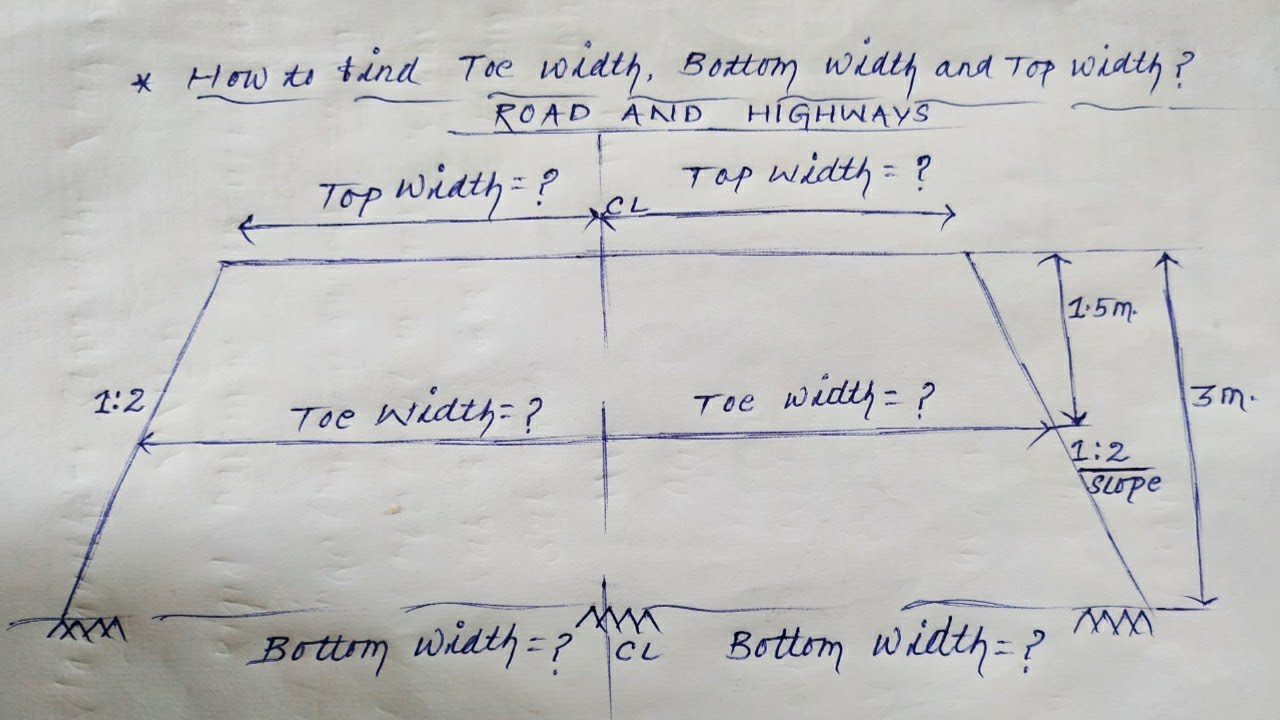 * How to find Toe width, Bottom width and Top width?
ROAD AND HIGHWAYS
Top width=? Top width=?
CL
1.5m.
1:2 Toe width=? Toe width=? 3m.
1:2
slope
Bottom width=? CL Bottom width=?